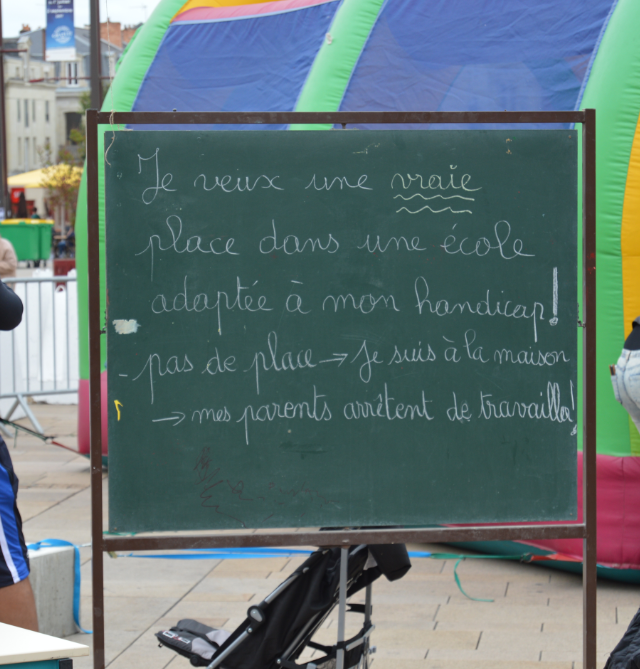 Je veux une vraie
place dans une école
adaptée à mon handicap!
- pas de place → Je suis à la maison
→ mes parents arrêtent de travailler!